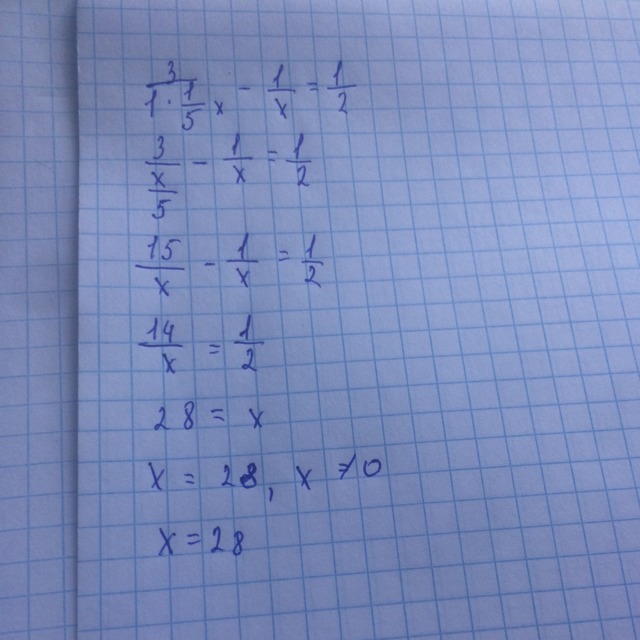 3/(1 · 1/5 x) - 1/x = 1/2
3/(x/5) - 1/x = 1/2
15/x - 1/x = 1/2
14/x = 1/2
28 = x
x = 28, x ≠ 0
x = 28